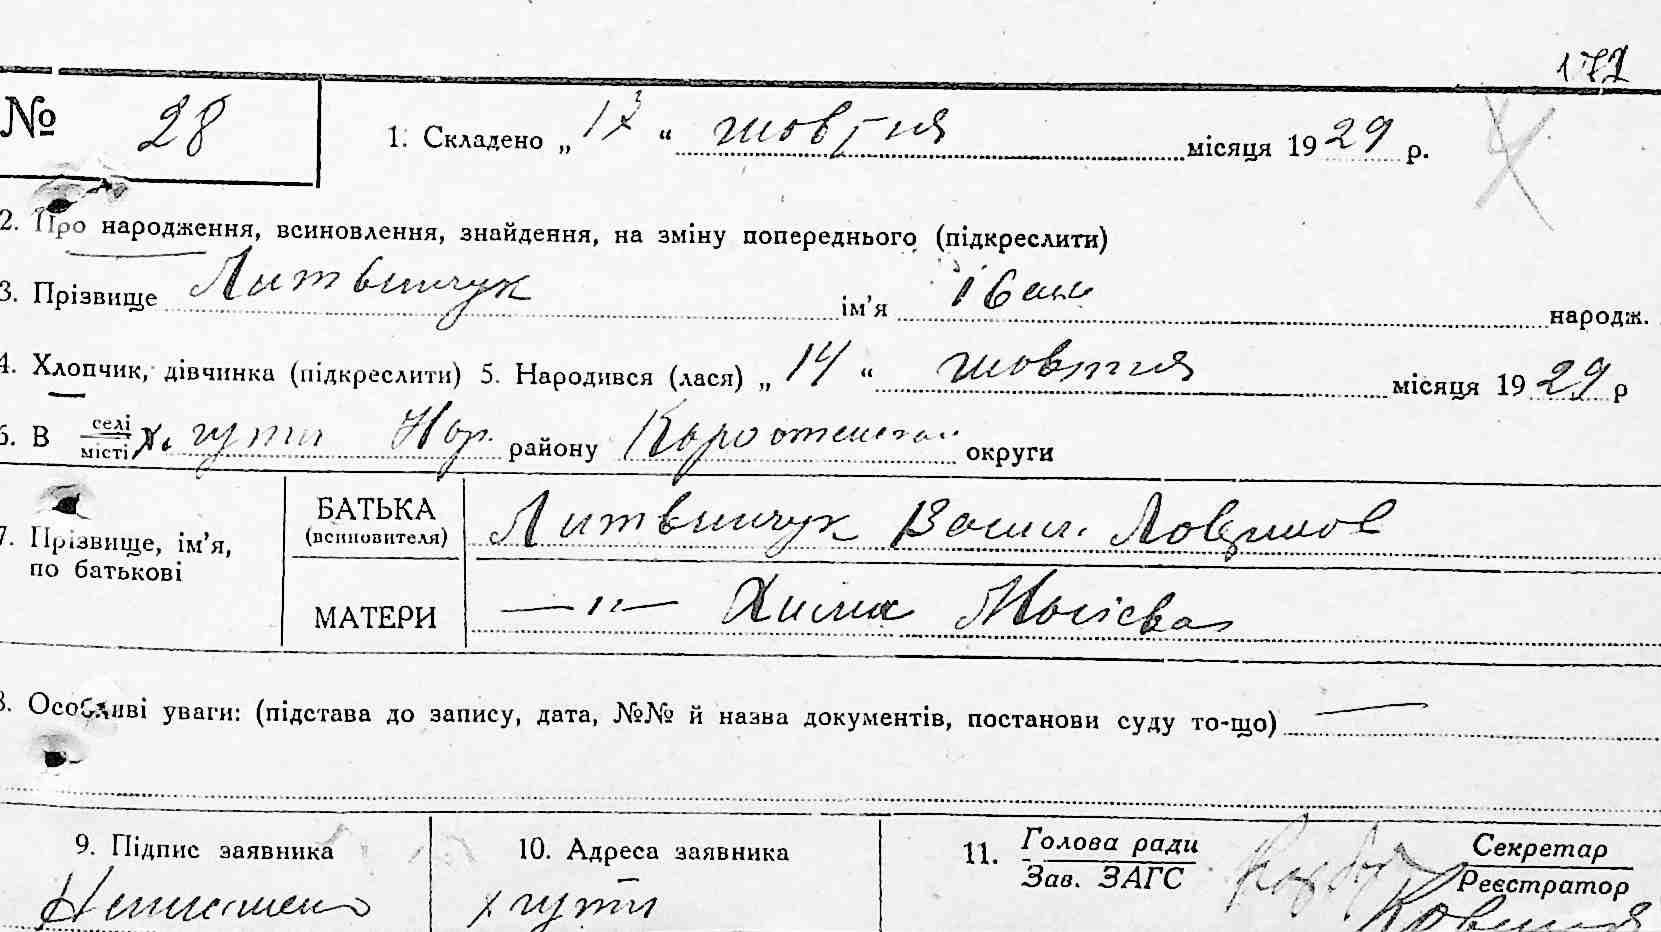 172
№ 28
1. Складено „ 17 “ жовтня місяця 1929 р.
2. Про народження, всиновлення, знайдення, на зміну попереднього (підкреслити)
3. Прізвище Литвинчук ім’я Іван народж.
4. Хлопчик, дівчинка (підкреслити) 5. Народився (лася) „ 14 “ жовтня місяця 1929 р
6. В селі х. гути Нор. району Коростенської округи
місті
7. Прізвище, ім’я, по батькові
БАТЬКА (всиновителя) Литвинчук Васил.
МАТЕРИ —"— Хима
8. Особливі уваги: (підстава до запису, дата, №№ й назва документів, постанови суду то-що) —
9. Підпис заявника 10. Адреса заявника 11. Голова ради Секретар
Зав. ЗАГС Реєстратор
Неписьмен х гути